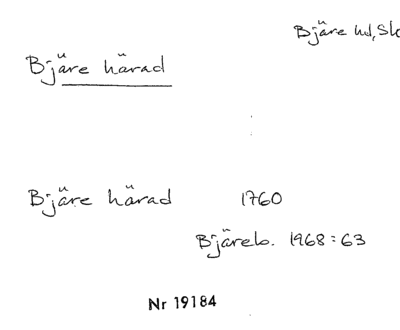 Bjäre hd, Sk
Bjäre härad
Bjäre härad 1760
Bjäreb. 1968:63
Nr 19184